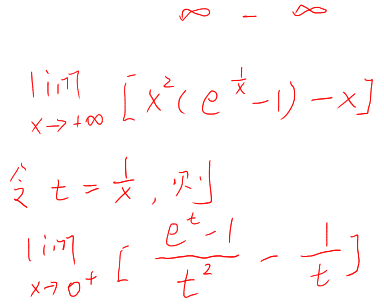 ∞ - ∞
lim x→+∞ [x²(e^(1/x) - 1) - x]
令 t = 1/x, 则
lim x→0⁺ [(e^t - 1)/t² - 1/t]